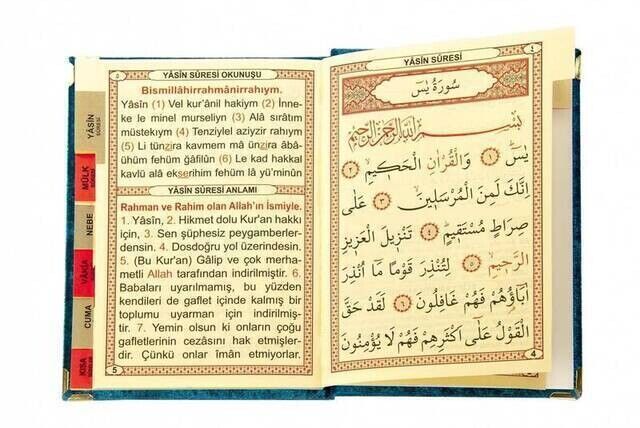 ٤
YÂSÎN SÛRESİ
سُورَةُ يٰسٓ
بِسْمِ اللّٰهِ الرَّحْمٰنِ الرَّحِيمِ
يٰسٓ ۚ ﴿١﴾ وَالْقُرْاٰنِ الْحَكِيمِ ﴿٢﴾
اِنَّكَ لَمِنَ الْمُرْسَلِينَ ﴿٣﴾ عَلٰى
صِرَاطٍ مُسْتَقِيمٍ ﴿٤﴾ تَنْزِيلَ الْعَزِيزِ
الرَّحِيمِ ﴿٥﴾ لِتُنْذِرَ قَوْمًا مَٓا اُنْذِرَ
اٰبَٓاؤُهُمْ فَهُمْ غَافِلُونَ ﴿٦﴾ لَقَدْ حَقَّ
الْقَوْلُ عَلٰٓى اَكْثَرِهِمْ فَهُمْ لَا يُؤْمِنُونَ
4
٥
YÂSİN SÛRESİ OKUNUŞU
Bismillâhirrahmânirrahıym.
Yâsîn (1) Vel kur'ânil hakiym (2) İnne-
ke le minel murseliyn (3) Alâ sırâtım
müstekıym (4) Tenziylel aziyzir rahıym
(5) Li tünzira kavmem mâ ünzira âbâ-
ühüm fehüm ğâfilûn (6) Le kad hakkal
kavlü alâ ekserihim fehüm lâ yü'minûn
YÂSÎN SÛRESİ ANLAMI
Rahman ve Rahim olan Allah'ın İsmiyle.
1. Yâsîn, 2. Hikmet dolu Kur'an hakkı
için, 3. Sen şüphesiz peygamberler-
densin. 4. Dosdoğru yol üzerindesin.
5. (Bu Kur'an) Gâlip ve çok merha-
metli Allah tarafından indirilmiştir. 6.
Babaları uyarılmamış, bu yüzden
kendileri de gaflet içinde kalmış bir
toplumu uyarman için indirilmiş-
tir. 7. Yemin olsun ki onların çoğu
gafletlerinin cezasını hak etmişler-
dir. Çünkü onlar îmân etmiyorlar.
5
YÂSİN
SÛRESİ
MÜLK
SÛRESİ
NEBE
VÂKIA
CUMA
KISA
SÛRELER